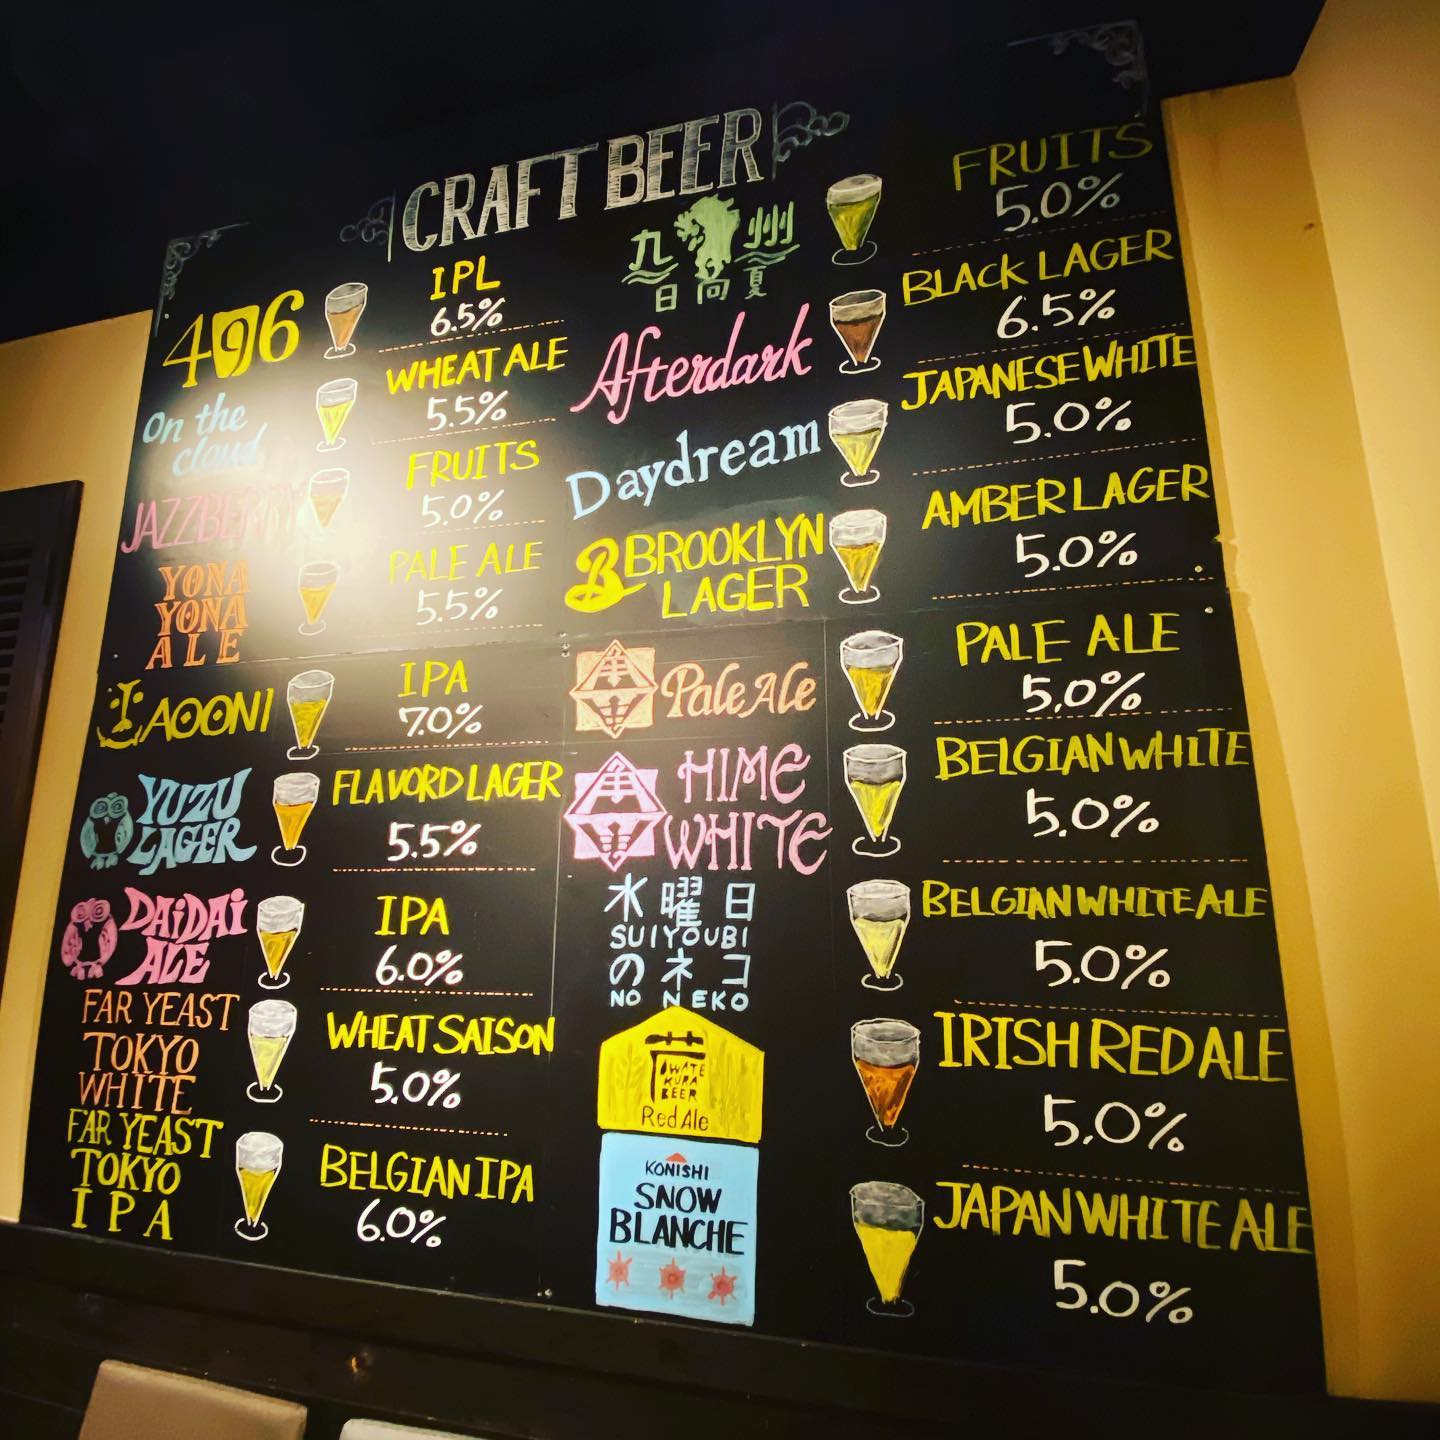 CRAFT BEER
496
IPL
6.5%
On the
cloud
WHEAT ALE
5.5%
JAZZBERRY
FRUITS
5.0%
YONA
YONA
ALE
PALE ALE
5.5%
AOONI
IPA
7.0%
YUZU
LAGER
FLAVORD LAGER
5.5%
DAiDAi
ALE
IPA
6.0%
FAR YEAST
TOKYO
WHITE
WHEAT SAISON
5.0%
FAR YEAST
TOKYO
IPA
BELGIAN IPA
6.0%
九州
日向夏
FRUITS
5.0%
Afterdark
BLACK LAGER
6.5%
Daydream
JAPANESE WHITE
5.0%
B BROOKLYN
LAGER
AMBER LAGER
5.0%
角 Pale Ale
PALE ALE
5.0%
角 HIME
WHITE
BELGIAN WHITE
5.0%
水曜日
SUIYOUBI
のネコ
NO NEKO
BELGIAN WHITE ALE
5.0%
OWATE
KURA
BEER
Red Ale
IRISH RED ALE
5.0%
KONISHI
SNOW
BLANCHE
JAPAN WHITE ALE
5.0%